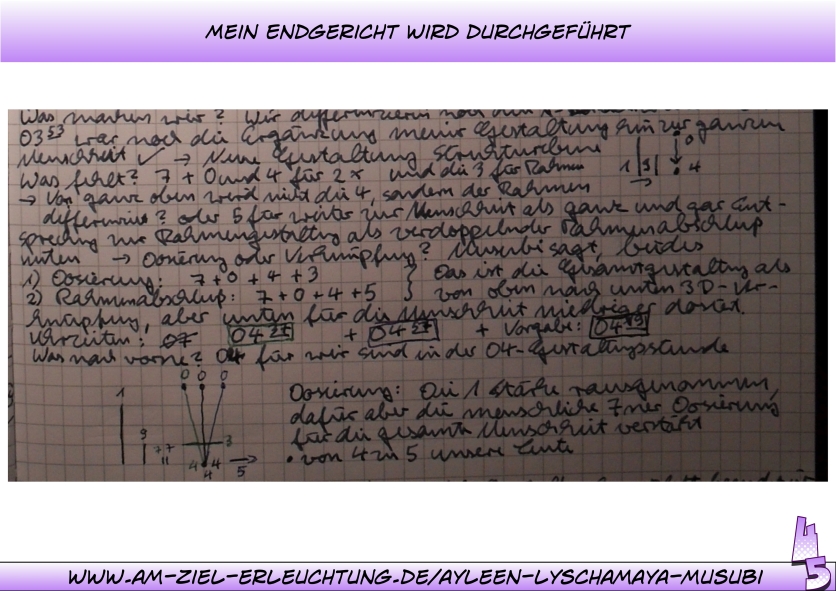 MEIN ENDGERICHT WIRD DURCHGEFÜHRT
Was machen wir? Wir differenzieren noch den
03 53 war noch die Ergänzung meiner Gestaltung hin zur ganzen
Menschheit ✓ → Neue Gestaltung Strukturebene
Was fehlt? 7 + 0 und 4 für 2x und die 3 für Rahmen
→ Von ganz oben wird nicht die 4, sondern der Rahmen
differenziert? oder 5 für weiter zur Menschheit als ganz und gar Ent-
sprechung zur Rahmengestaltung als verdoppelnder Rahmenabschluß
unten → Dosierung oder Verknüpfung? Musubi sagt, beides
1) Dosierung: 7+0+4+3 } Das ist die Gesamtgestaltung als
2) Rahmenabschluß: 7+0+4+5 } von oben nach unten 3D-Ver-
knüpfung, aber unten für die Menschheit niedriger dosiert.
Uhrzeiten: 07 04 27 + 04 37 + Vorgabe: 04
Was nach vorne? 04 für wir sind in der 04-Gestaltungsstunde
0 0 0
1 9 7 7 3
4 4 4 5
1 9 0 4
Dosierung: Die 1 stärke rausgenommen,
dafür aber die menschliche 7ner Dosierung
für die gesamte Menschheit verstärkt
• von 4 zu 5 unsere Leute
45
WWW.AM-ZIEL-ERLEUCHTUNG.DE/AYLEEN-LYSCHAMAYA-MUSUBI